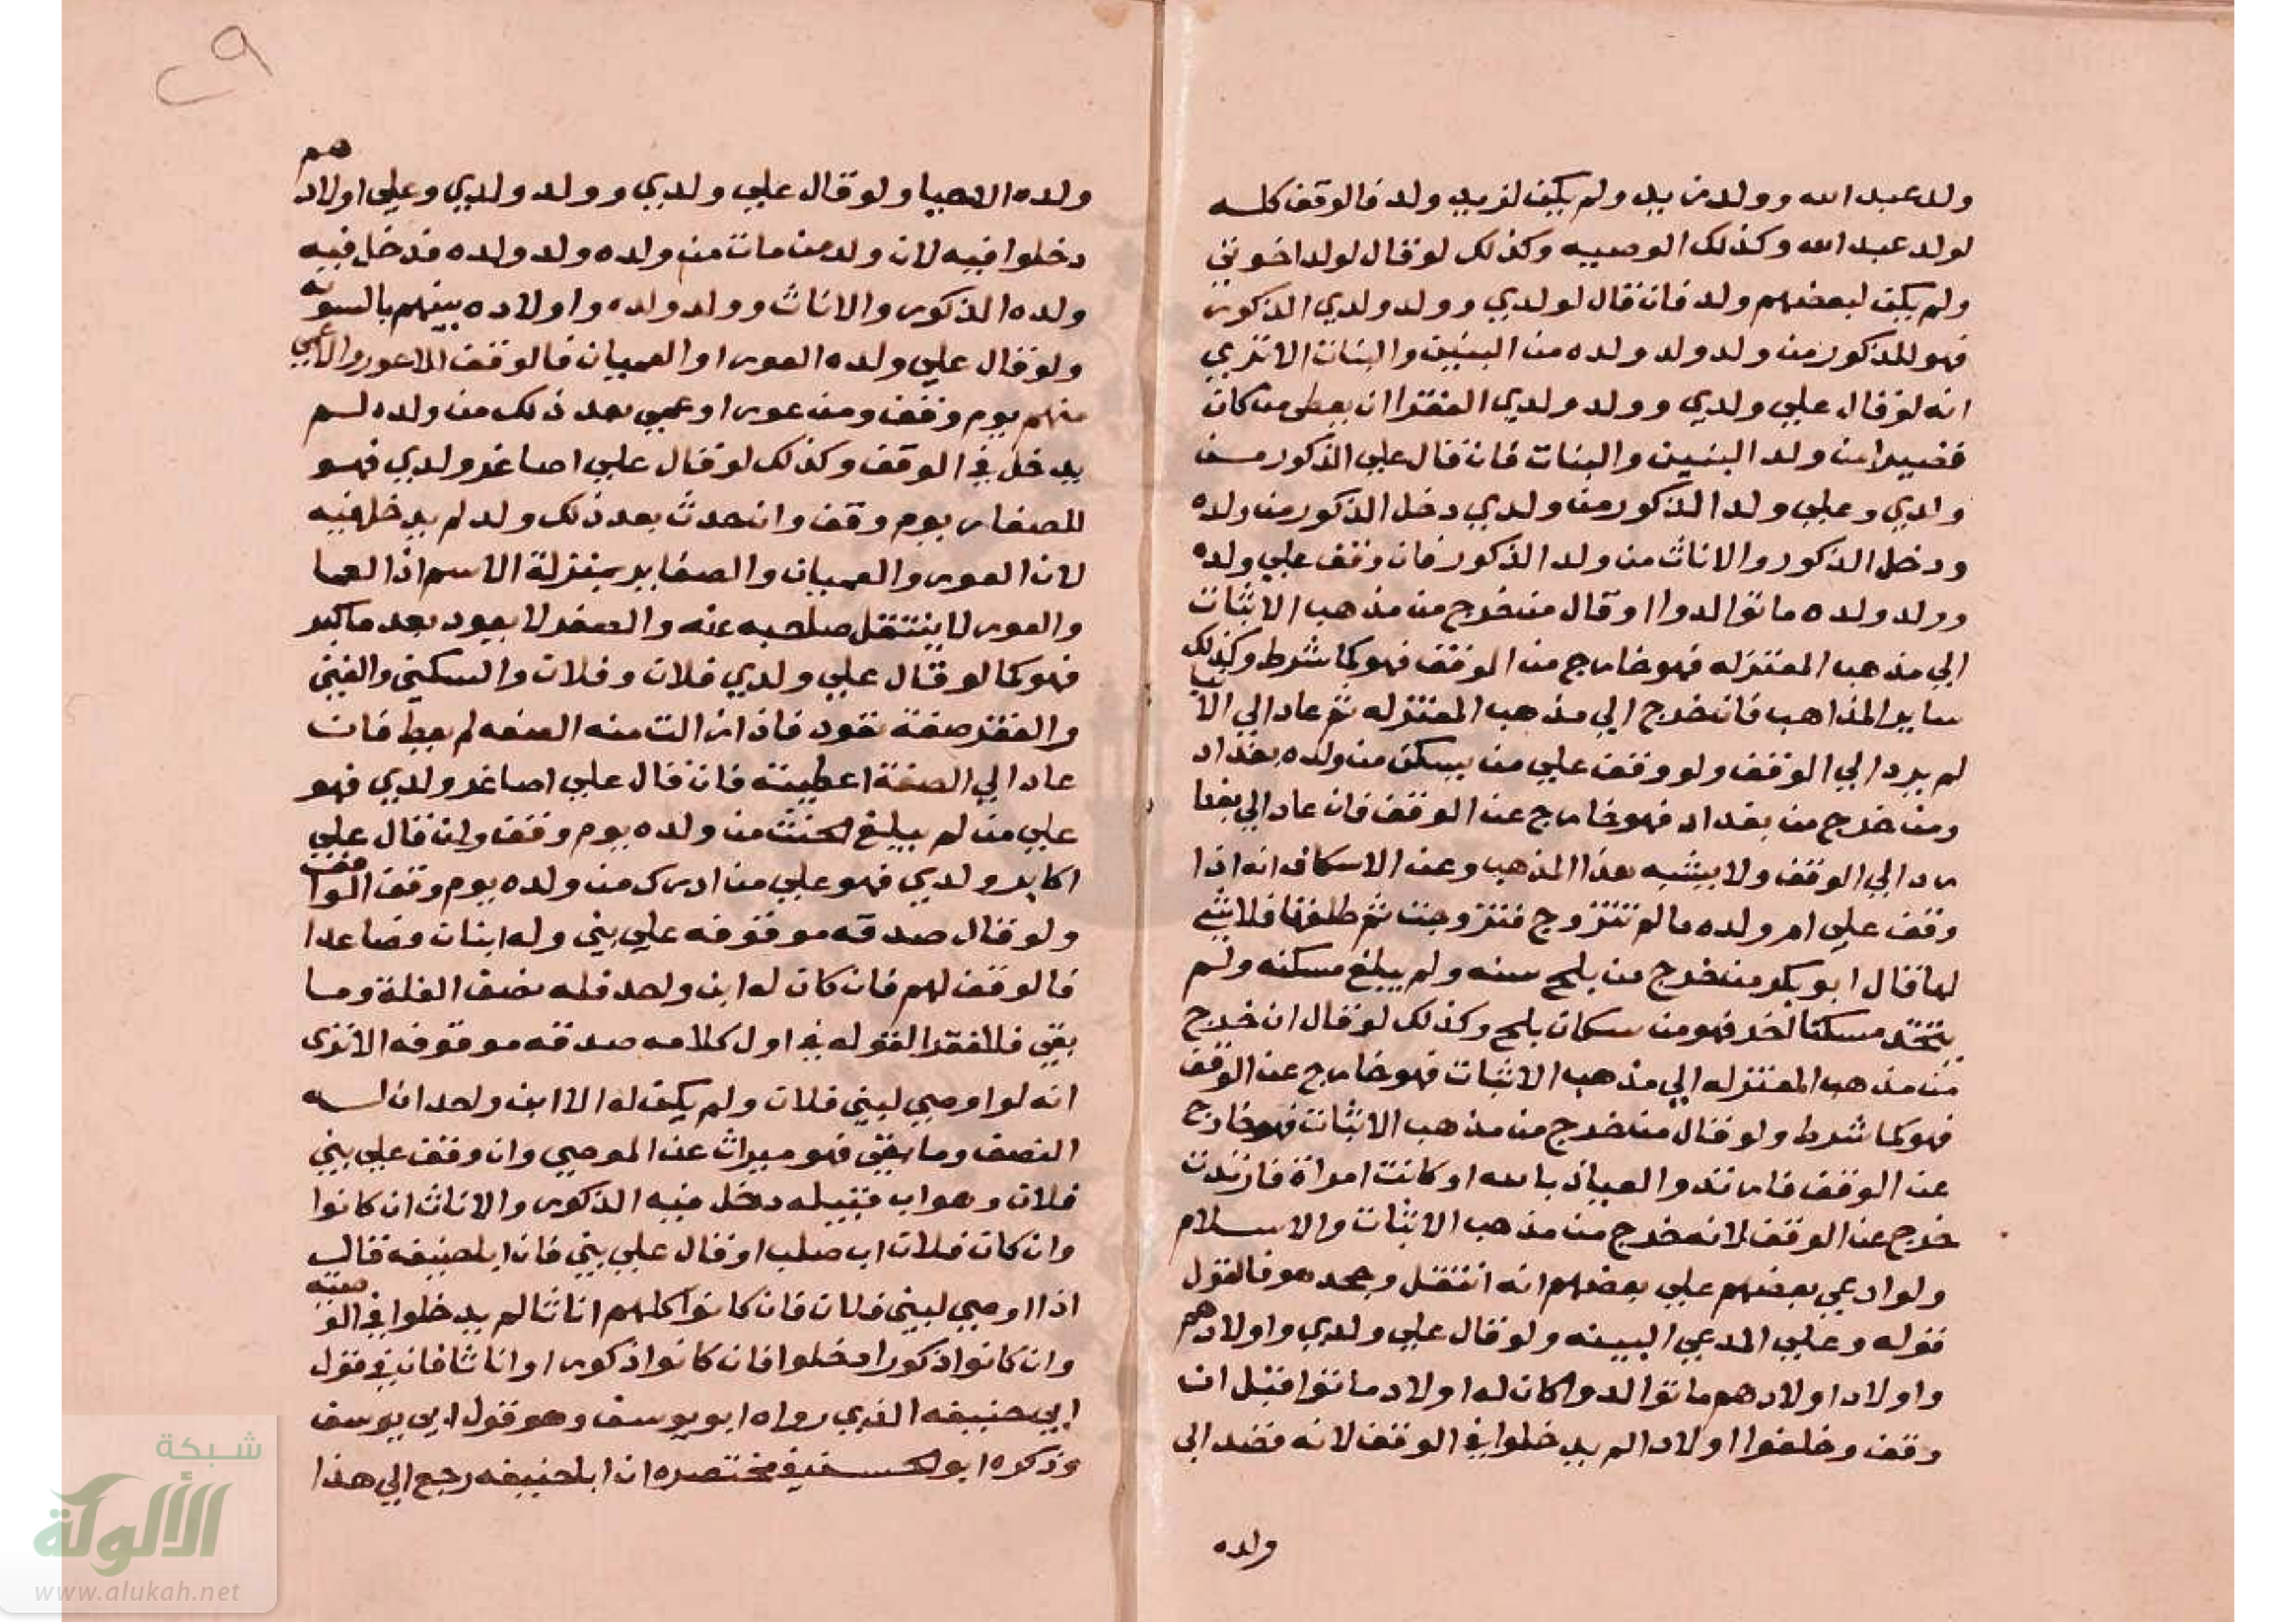 ولد عبد الله وولد زيد ولم يكن لزيد ولد فالوقف كله
لولد عبد الله وكذلك الوصيه وكذلك لو قال لولد اخوتي
ولم يكن لبعضهم ولد فان قال لولدي وولد ولدي الذكور
فهو للذكور من ولد ولد ولده من البنين والبنات الا تري
انه لو قال علي ولدي وولد ولدي الفقرا ان يعطي من كان
فقيرا من ولد البنين والبنات فان قال علي الذكور من
ولدي وعلي ولد الذكور من ولدي دخل الذكور من ولده
ودخل الذكور والاناث من ولد الذكور فان وقف علي ولده
وولد ولده ما توالدوا وقال من خرج من مذهب الاثبات
الي مذهب المعتزله فهو خارج من الوقف فهو كما شرط وكذلك
ساير المذاهب فان خرج الي مذهب المعتزله ثم عاد الي الاثبات
لم يرد الي الوقف ولو وقف علي من يسكن من ولده بغداد
ومن خرج من بغداد فهو خارج عن الوقف فان عاد الي بغدا
رد الي الوقف ولا يشبه هذا المذهب وعن الاسكاف انه اذا
وقف علي ام ولده ما لم تتزوج فتزوجت ثم طلقها فلا شي
لها قال ابو بكر من خرج من بلخ سنه ولم يبلغ مسكنه ولم
يتخذ مسكنا اخر فهو من سكان بلخ وكذلك لو قال ان خرج
من مذهب المعتزله الي مذهب الاثبات فهو خارج عن الوقف
فهو كما شرط ولو قال من خرج من مذهب الاثبات فهو خارج
عن الوقف فارتد والعياذ بالله او كانت امراة فارتدت
خرج عن الوقف لانه خرج من مذهب الاثبات والاسلام
ولو ادعي بعضهم علي بعضهم انه انتقل وجحد هو فالقول
قوله وعلي المدعي البينه ولو قال علي ولدي واولادهم
واولاد اولادهم ما توالدوا وكان له اولاد ماتوا قبل ان
وقف وخلفوا اولادا لم يدخلوا في الوقف لانه قصد الي
ولده
٢٩
ولده الاحيا ولو قال علي ولدي وولد ولدي وعلي اولادهم
دخلوا فيه لان ولد من مات من ولده ولد ولده فدخل فيه
ولده الذكور والاناث وولد ولده واولاده بينهم بالسويه
ولو قال علي ولده العور او العميان فالوقف للاعور والاعمي
منهم يوم وقف ومن عور او عمي بعد ذلك من ولده لم
يدخل في الوقف وكذلك لو قال علي اصاغر ولدي فهو
للصغار يوم وقف وان حدث بعد ذلك ولد لم يدخل فيه
لان العور والعميان والصغاير بمنزلة الاسم اذ العما
والعور لا ينتقل صاحبه عنه والصغر لا يعود بعد ما كبر
فهو كما لو قال علي ولدي فلان وفلان والسكني والغني
والفقر صفة تعود فاذا زالت منه الصفه لم يعط فان
عاد الي الصفة اعطيته فان قال علي اصاغر ولدي فهو
علي من لم يبلغ الحنث من ولده يوم وقف وان قال علي
اكابر ولدي فهو علي من ادرك من ولده يوم وقف الواقف
ولو قال صدقه موقوفه علي بني وله ابنان وصاعدا
فالوقف لهم فان كان له ابن واحد فله نصف الغلة وما
بقي فللفقرا لقوله في اول كلامه صدقه موقوفه الا تري
انه لو اوصي لبني فلان ولم يكن له الا ابن واحد ان له
النصف وما بقي فهو ميراث عن الموصي وان وقف علي بني
فلان وهو اب قبيله دخل فيه الذكور والاناث ان كانوا
وان كان فلان اب صلب او قال علي بني فان ابا حنيفه قال
اذا اوصي لبني فلان فان كانوا كلهم اناثا لم يدخلوا في الوصيه
وان كانوا ذكورا دخلوا فان كانوا ذكور او اناثا فان في قول
ابي حنيفه الذي رواه ابو يوسف وهو قول ابي يوسف
وذكره ابو الحسن في مختصره ان ابا حنيفه رجع الي هذا
شبكة
الألوكة
www.alukah.net